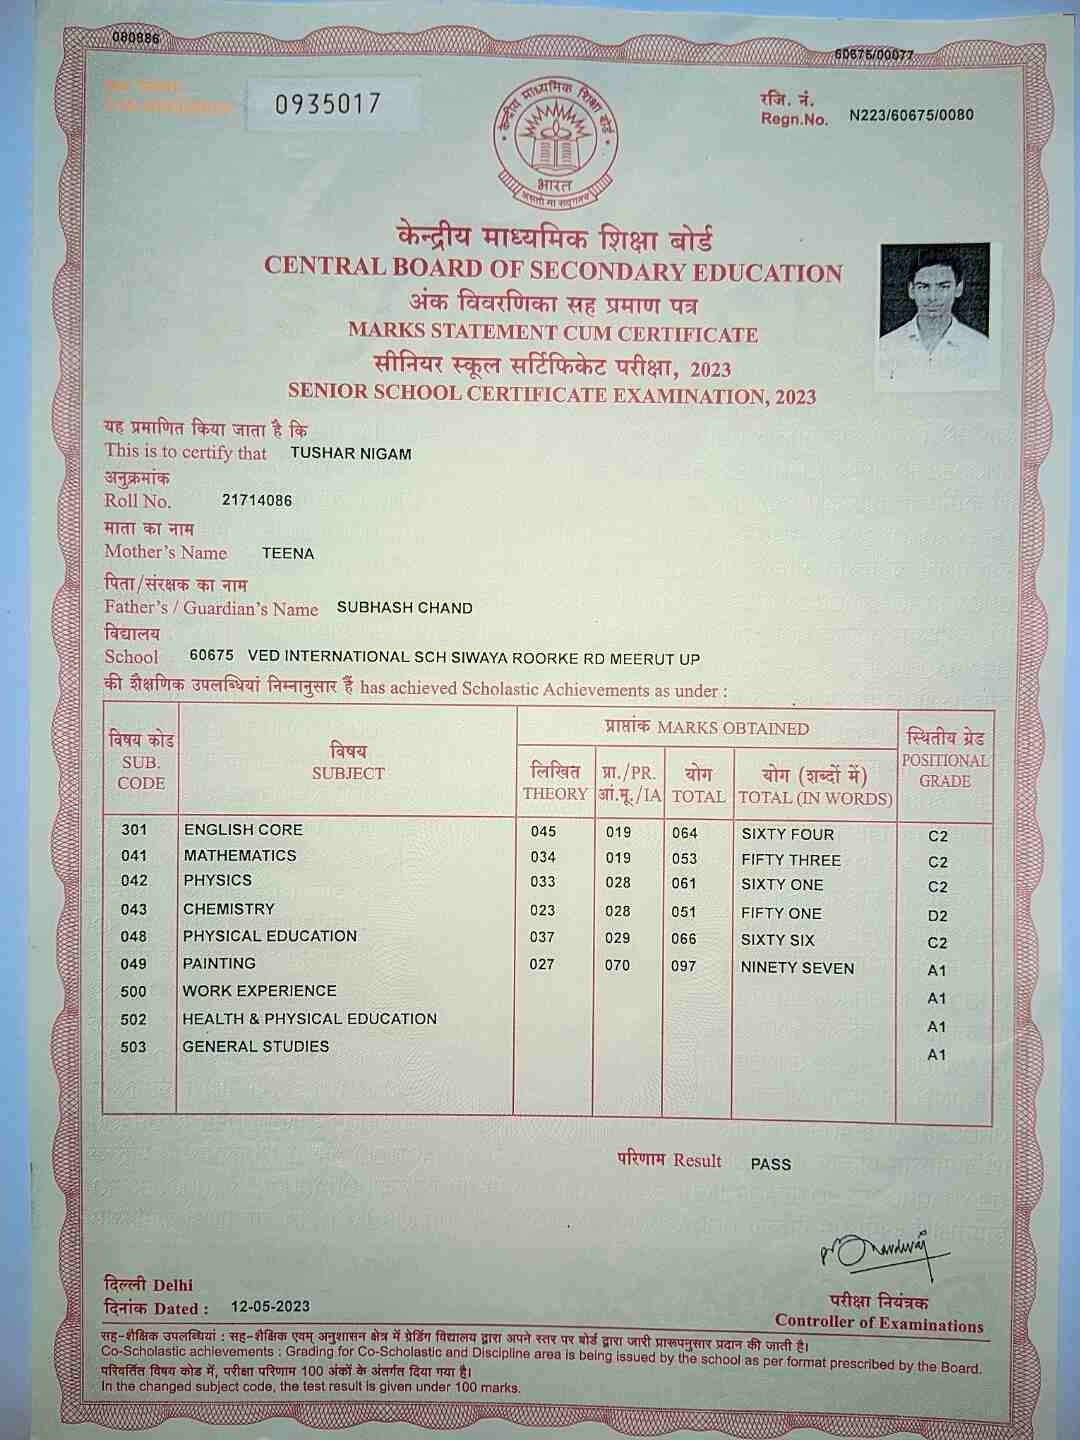 080886
60675/00077
0935017
रजि. नं.
Regn.No. N223/60675/0080
केन्द्रीय माध्यमिक शिक्षा बोर्ड
भारत
असतो मा सद्गमय
केन्द्रीय माध्यमिक शिक्षा बोर्ड
CENTRAL BOARD OF SECONDARY EDUCATION
अंक विवरणिका सह प्रमाण पत्र
MARKS STATEMENT CUM CERTIFICATE
सीनियर स्कूल सर्टिफिकेट परीक्षा, 2023
SENIOR SCHOOL CERTIFICATE EXAMINATION, 2023
यह प्रमाणित किया जाता है कि
This is to certify that TUSHAR NIGAM
अनुक्रमांक
Roll No. 21714086
माता का नाम
Mother's Name TEENA
पिता/संरक्षक का नाम
Father's / Guardian's Name SUBHASH CHAND
विद्यालय
School 60675 VED INTERNATIONAL SCH SIWAYA ROORKE RD MEERUT UP
की शैक्षणिक उपलब्धियां निम्नानुसार हैं has achieved Scholastic Achievements as under :
विषय कोड SUB. CODE
विषय SUBJECT
प्राप्तांक MARKS OBTAINED
स्थितीय ग्रेड POSITIONAL GRADE
लिखित THEORY
प्रा./PR. आं.मू./IA
योग TOTAL
योग (शब्दों में) TOTAL (IN WORDS)
301 ENGLISH CORE 045 019 064 SIXTY FOUR C2
041 MATHEMATICS 034 019 053 FIFTY THREE C2
042 PHYSICS 033 028 061 SIXTY ONE C2
043 CHEMISTRY 023 028 051 FIFTY ONE D2
048 PHYSICAL EDUCATION 037 029 066 SIXTY SIX C2
049 PAINTING 027 070 097 NINETY SEVEN A1
500 WORK EXPERIENCE A1
502 HEALTH & PHYSICAL EDUCATION A1
503 GENERAL STUDIES A1
परिणाम Result PASS
दिल्ली Delhi
दिनांक Dated : 12-05-2023
परीक्षा नियंत्रक
Controller of Examinations
सह-शैक्षिक उपलब्धियां : सह-शैक्षिक एवम् अनुशासन क्षेत्र में ग्रेडिंग विद्यालय द्वारा अपने स्तर पर बोर्ड द्वारा जारी प्रारूपनुसार प्रदान की जाती है।
Co-Scholastic achievements : Grading for Co-Scholastic and Discipline area is being issued by the school as per format prescribed by the Board.
परिवर्तित विषय कोड में, परीक्षा परिणाम 100 अंकों के अंतर्गत दिया गया है।
In the changed subject code, the test result is given under 100 marks.